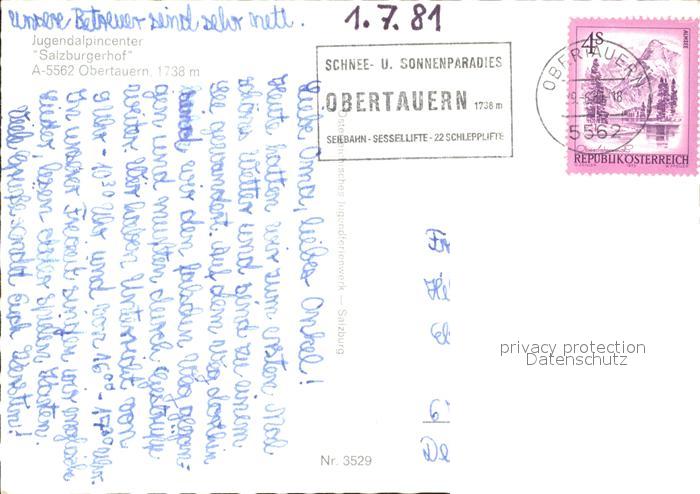 Unsere Betreuer sind sehr nett.
1.7.81
Jugendalpincenter
"Salzburgerhof"
A-5562 Obertauern, 1738 m
SCHNEE- U. SONNENPARADIES
OBERTAUERN 1738 m
SEILBAHN - SESSELLIFTE - 22 SCHLEPPLIFTE
OBERTAUERN
5562
4 S
ALMSEE
REPUBLIK ÖSTERREICH
Liebe Oma, lieber Onkel!
Heute hatten wir zum ersten Mal
schönes Wetter und sind zu einem
See gewandert. Auf dem Weg dorthin
sind wir den falschen Weg gegan-
gen und mußten
weiter. Wir haben Unterricht von
9 Uhr - 10³⁰ Uhr und von 16⁰⁰ - 17⁰⁰ Uhr.
In unserer Freizeit singen wir
lesen oder spielen Karten.
Viele Grüße schickt Euch Kerstin!
Österreichisches Jugendferienwerk — Salzburg
Nr. 3529
privacy protection
Datenschutz